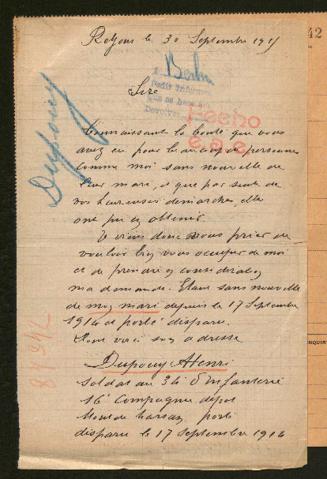 Retjons le 30 Septembre 1915
Berlin
Sire
Hecho
e.a.e.
Dupouy
Connaissant la bonté que vous
avez eu pour beaucoup de personnes
comme moi sans nouvelle de
leur mari, et que par suite de
vos heureuses demarches, elle
ont pu en obtenir.
Je viens donc vous prier de
vouloir bien vous occuper de moi
et de prendre en consideration
ma demande. Etant sans nouvelle
de mon mari depuis le 17 Septembre
1914 et porté disparu.
Dont voici son adresse
Dupouy Henri
Soldat au 34e d'infanterie
16e Compagnie depot
Mont de Marsan porté
disparu le 17 Septembre 1914
42